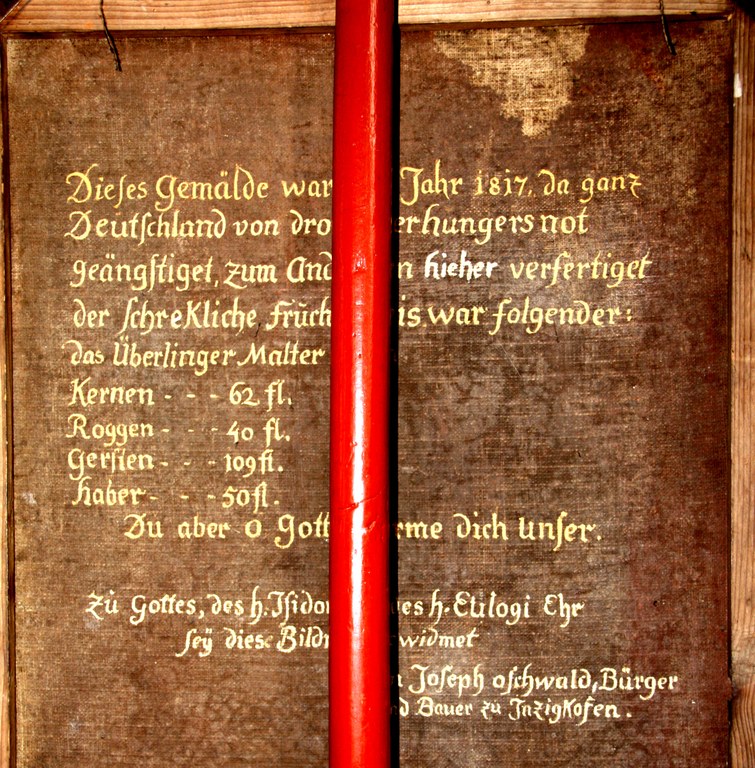 Dieses Gemälde war Jahr 1817, da ganz
Deutschland von dro erhungers not
geängstiget, zum And n hieher verfertiget
der schrekliche Früch is war folgender:
das Überlinger Malter
Kernen - - - 62 fl.
Roggen - - - 40 fl.
Gersten - - - 109 fl.
Haber - - - 50 fl.
Du aber O Gott rme dich unser.
Zu Gottes, des h. Isidor es h. Eulogi Ehr
seÿ diese Bildn widmet
n Joseph Oschwald, Bürger
nd Bauer zu Inzigkofen.